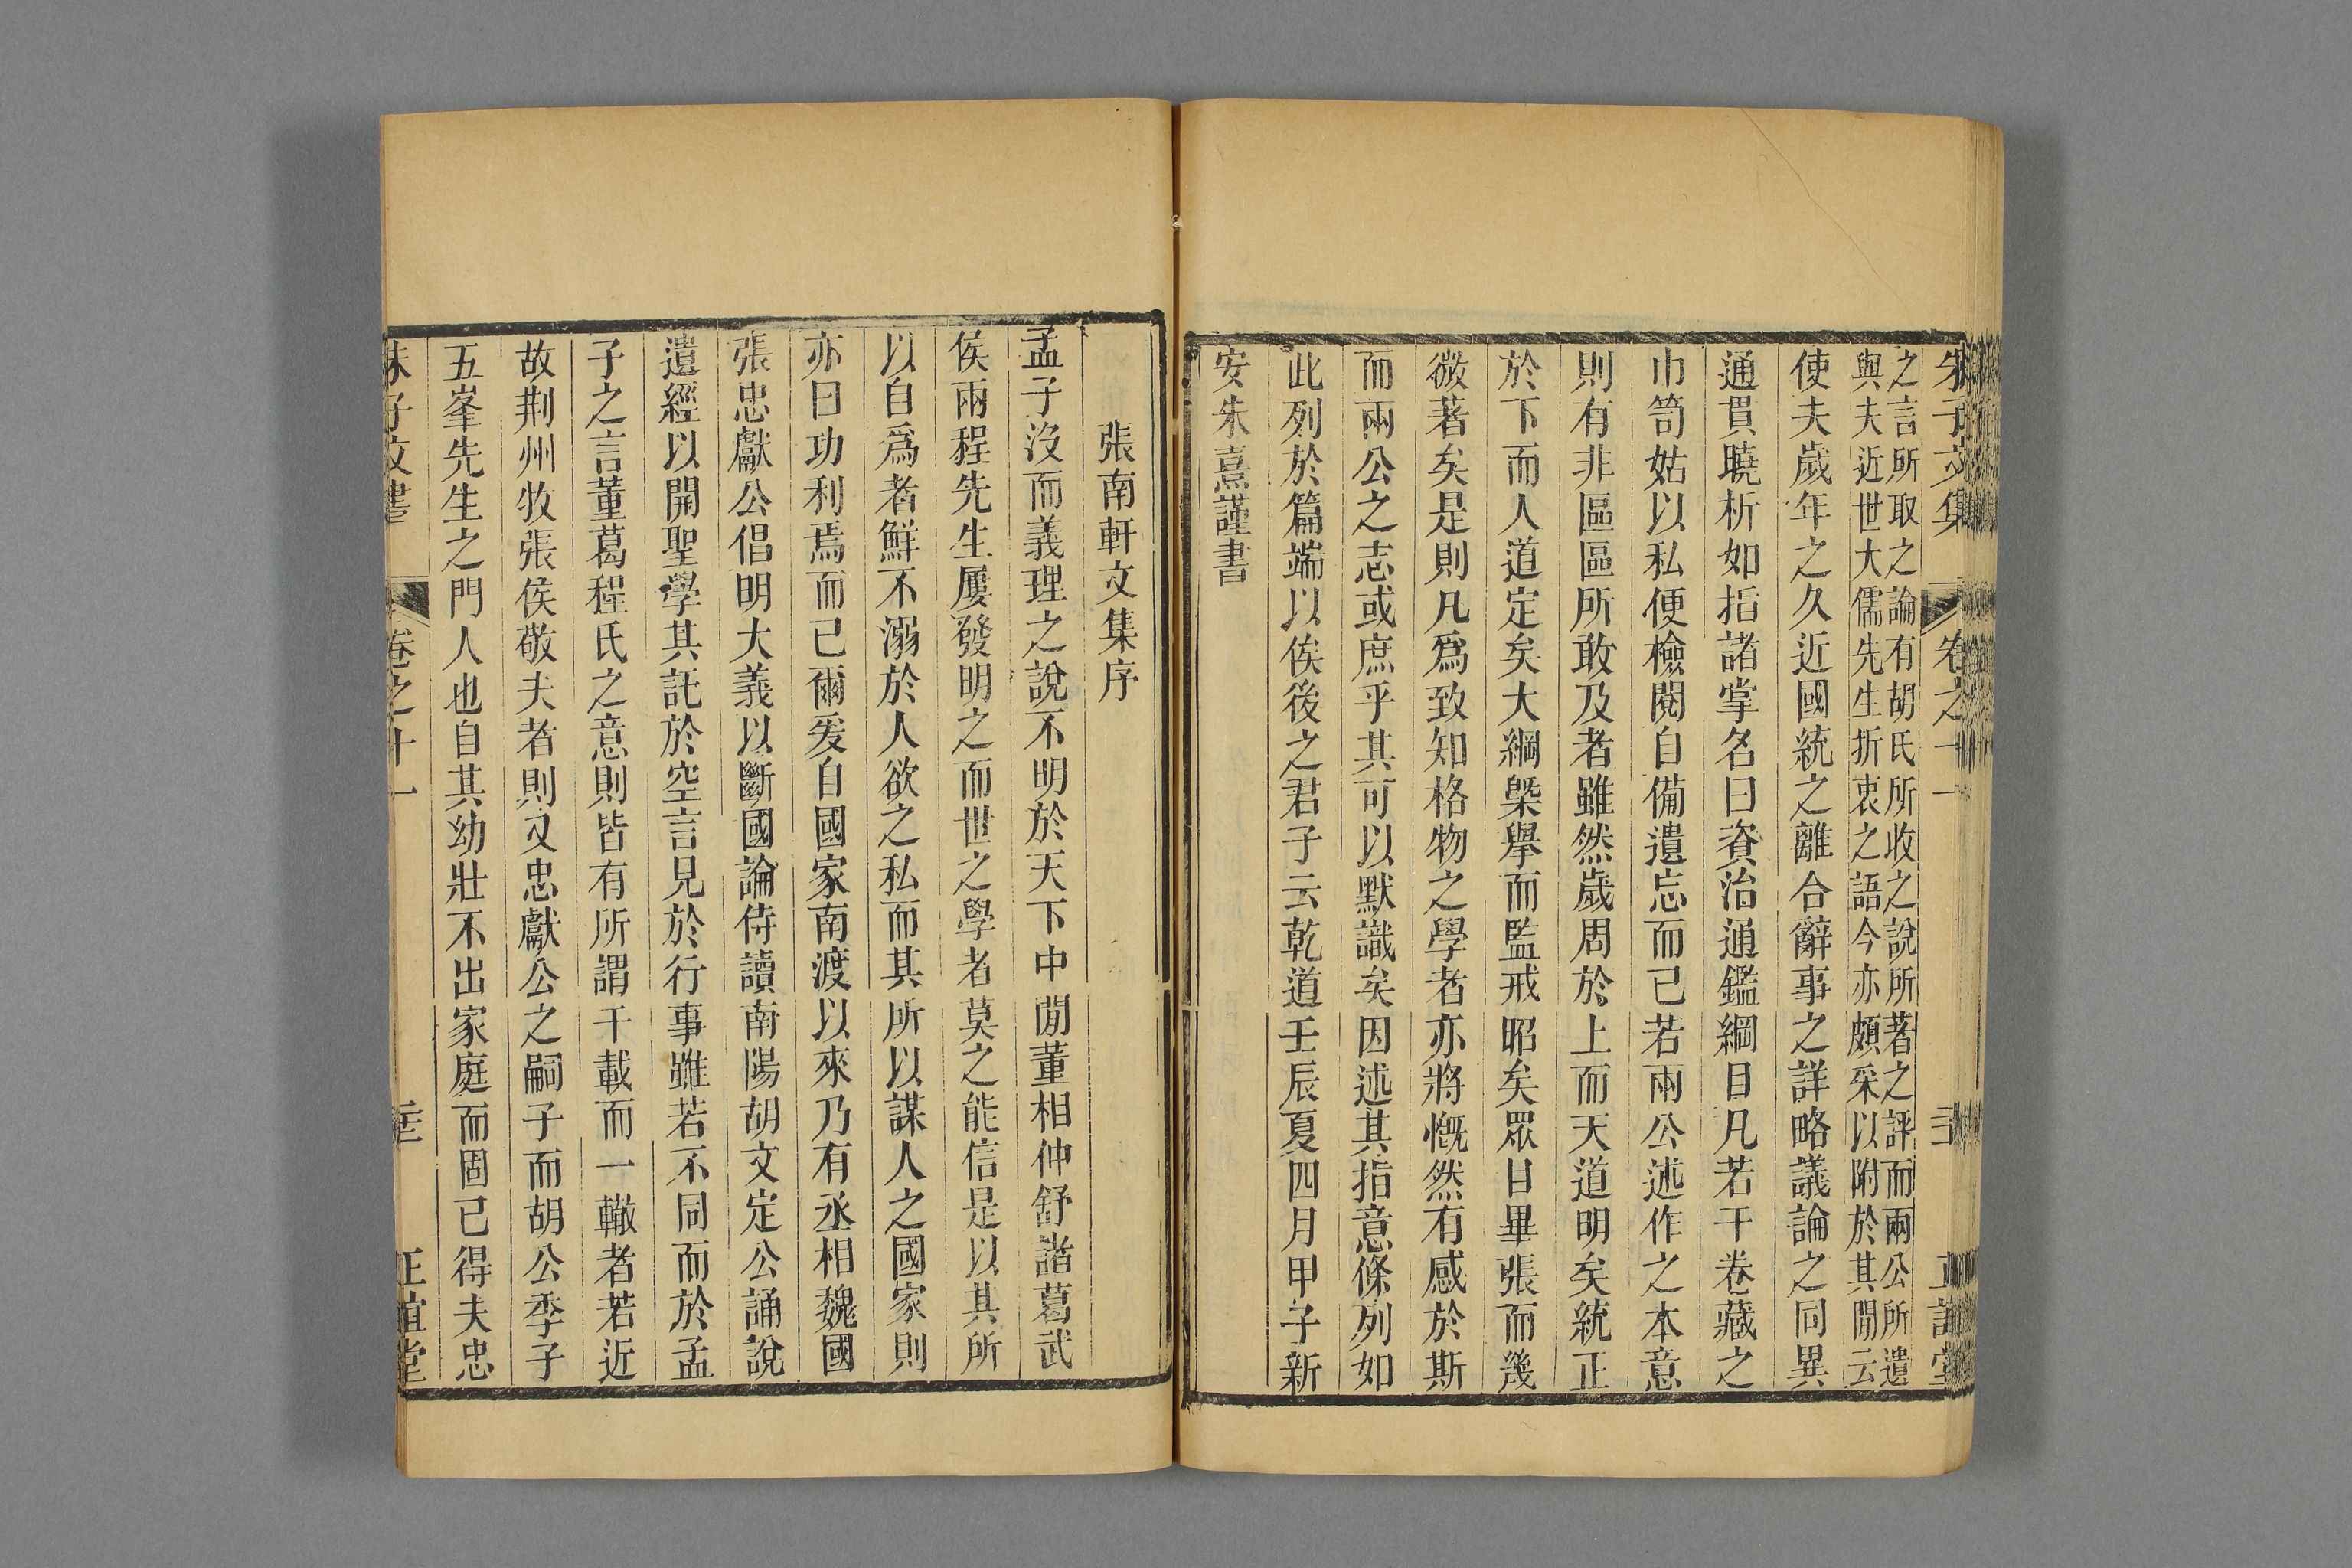 朱子文集 卷之十一
之言所取之論有胡氏所收之說所著之評而兩公所遺
與夫近世大儒先生折衷之語今亦頗采以附於其閒云
使夫歲年之久近國統之離合辭事之詳略議論之同異
通貫曉析如指諸掌名曰資治通鑑綱目凡若干卷藏之
巾笥姑以私便檢閱自備遺忘而已若兩公述作之本意
則有非區區所敢及者雖然歲周於上而天道明矣統正
於下而人道定矣大綱槩舉而監戒昭矣眾目畢張而幾
微著矣是則凡爲致知格物之學者亦將慨然有感於斯
而兩公之志或庶乎其可以默識矣因述其指意條列如
此列於篇端以俟後之君子云乾道壬辰夏四月甲子新
安朱熹謹書
張南軒文集序
孟子沒而義理之說不明於天下中閒董相仲舒諸葛武
侯兩程先生屢發明之而世之學者莫之能信是以其所
以自爲者鮮不溺於人欲之私而其所以謀人之國家則
亦曰功利焉而已爾爰自國家南渡以來乃有丞相魏國
張忠獻公倡明大義以斷國論侍讀南陽胡文定公誦說
遺經以開聖學其託於空言見於行事雖若不同而於孟
子之言董葛程氏之意則皆有所謂千載而一轍者若近
故荆州牧張侯敬夫者則又忠獻公之嗣子而胡公季子
五峯先生之門人也自其幼壯不出家庭而固已得夫忠
卷之十一 正誼堂